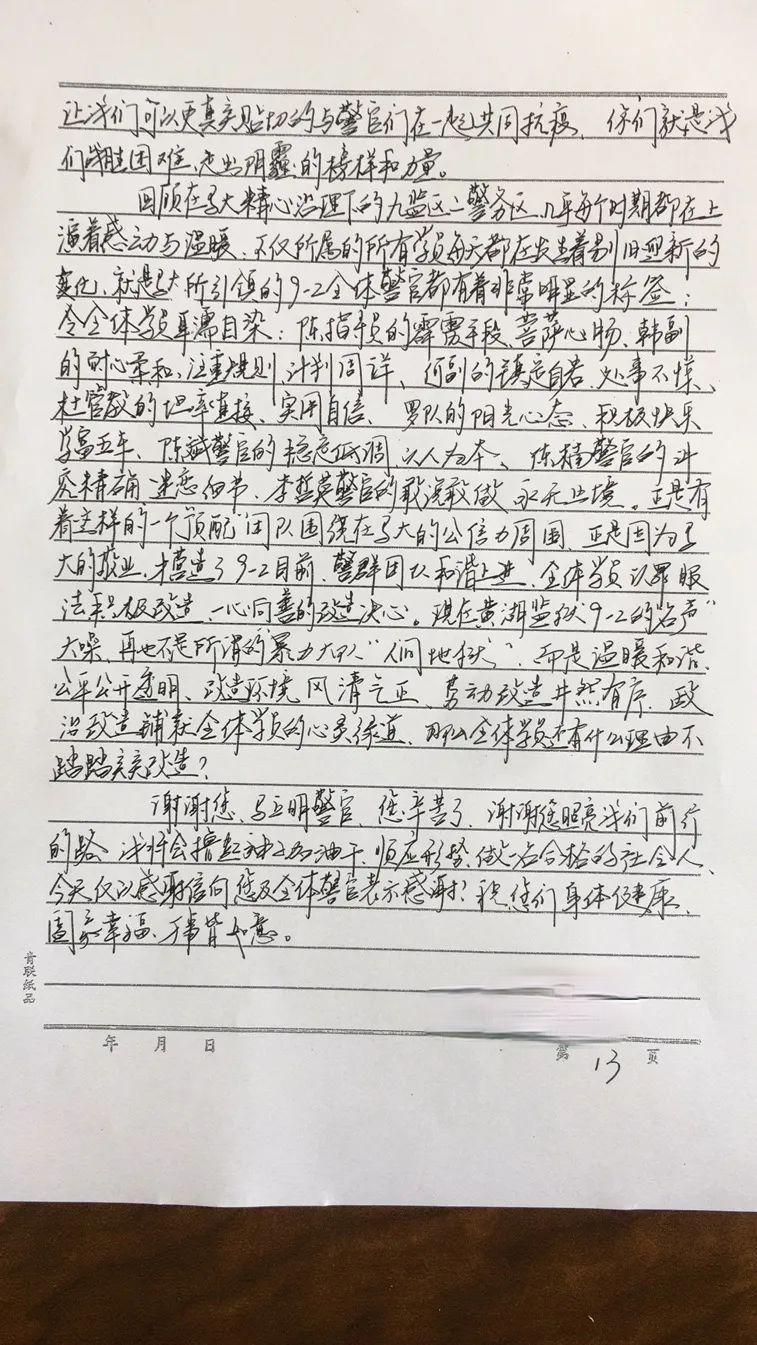 让我们可以更真实贴切的与警官们在一起共同抗疫、你们就是我
们战胜困难、走出阴霾的榜样和力量。
回顾在马大精心治理下的九监区二警务区、几乎每个时期都在上
演着感动与温暖、不仅所属的所有学员每天都在发生着别旧迎新的
变化、就是马大所引领的9-2全体警官都有着非常明显的标签；
令全体学员耳濡目染：陈指导员的霹雳手段、菩萨心肠、韩副
的耐心柔和、注重规则、计划周详、何副的镇定自若、处事不惊、
杜管教的坦率直接、实用自信、罗队的阳光心态、积极快乐
学富五车、陈斌警官的稳定低调、以人为本、陈楠警官的
精确、迷恋细节、李哲英警官的敢说敢做、永无止境。正是有
着这样的一个"顶配"团队围绕在马大的公信力周围、正是因为马
大的敬业、才营造了9-2目前、警群团队和谐上进、全体学员认罪服
法积极改造、一心向善的改造决心。现在黄湖监狱9-2的名声"
大噪、再也不是所谓的"暴力大队""人间地狱"、而是温暖和谐、
公平公开透明、改造环境风清气正、劳动改造井然有序、政
治改造铺就全体学员的心灵绿道、那么全体学员还有什么理由不
踏踏实实改造？
谢谢您、马立明警官 您辛苦了、谢谢您照亮我们前行
的路 我将会撸起袖子加油干、顺应形势、做一名合格的社会人、
今天仅以感谢信向您及全体警官表示感谢！祝您们身体健康、
阖家幸福、万事皆如意。
青联纸品
年 月 日 第 13 页